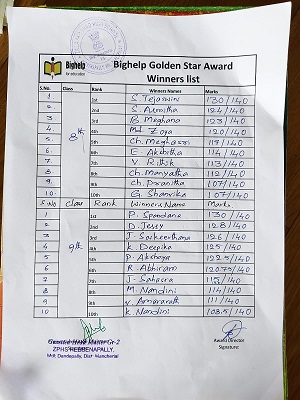 Bighelp
for education
Bighelp Golden Star Award
Winners list
S.No. Class Rank Winners Names Marks
1 8th 1st S. Tejaswini 130/140
2. 2nd S. Amrutha 124/140
3. 3rd B. Meghana 123/140
4. 4th Md. Zoya 120/140
5. 5th Ch. Meghassri /140
6. 6th E. Akshitha 114/140
7. 7th V. Rithik 113/140
8. 8th Ch. Manyatha 112/140
9. 9th Ch. Pranitha 107/140
10. 10th G. Shanvika 107/140
S.No Class Rank Winners Name Marks
1 9th 1st P. Spandana 130/140
2 2nd D. Jessy 128/140
3 3rd J. Sathcerthana 126/140
4 4th K. Deepika 125/140
5 5th P. Akshaya 122.5/140
6 6th R. Abhiram 120.75/140
7 7th J. Sahasra 115/140
8 8th M. Nandini 114/140
9 9th Y. Amararath 111/140
10 10th K. Nandini 108.5/140
Head Master Gr-2
ZPHS REBBENAPALLY,
Mdl: Dandepally, Dist: Mancherial
Award Director
Signature: